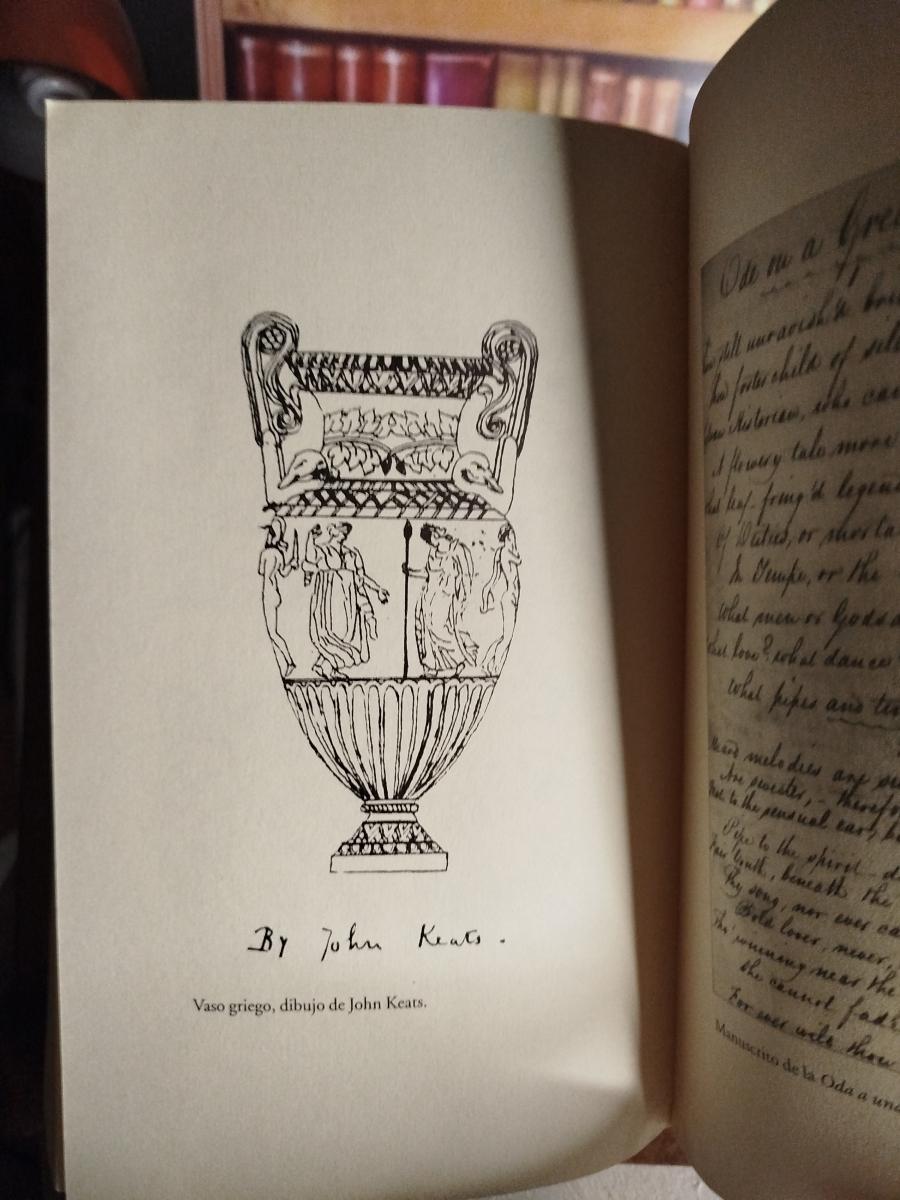 By John Keats.
Vaso griego, dibujo de John Keats.
Ode on a Gre
still unravish'd
foster child of sil
Historian, who can
A flowery tale more
leaf-fring'd legen
Of Deities, or morta
In Tempe, or the
What men or Gods a
what love? what dance
What pipes and tim
melodies are
Are sweeter,- therefo
Not to the sensual ear,
Pipe to the spirit d
Fair Youth, beneath the
Thy song, nor ever ca
Bold lover, never,
Tho' winning near the
She cannot fade
For ever wilt thou
Manuscrito de la Oda a una